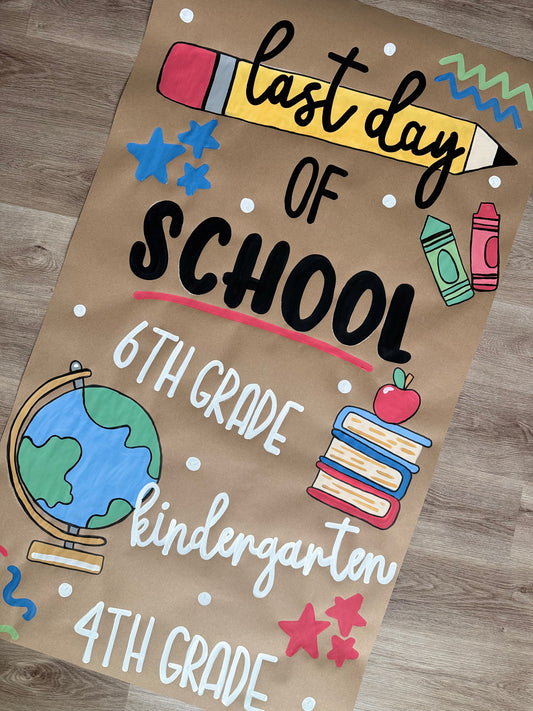 last day
OF
SCHOOL
6TH GRADE
kindergarten
4TH GRADE